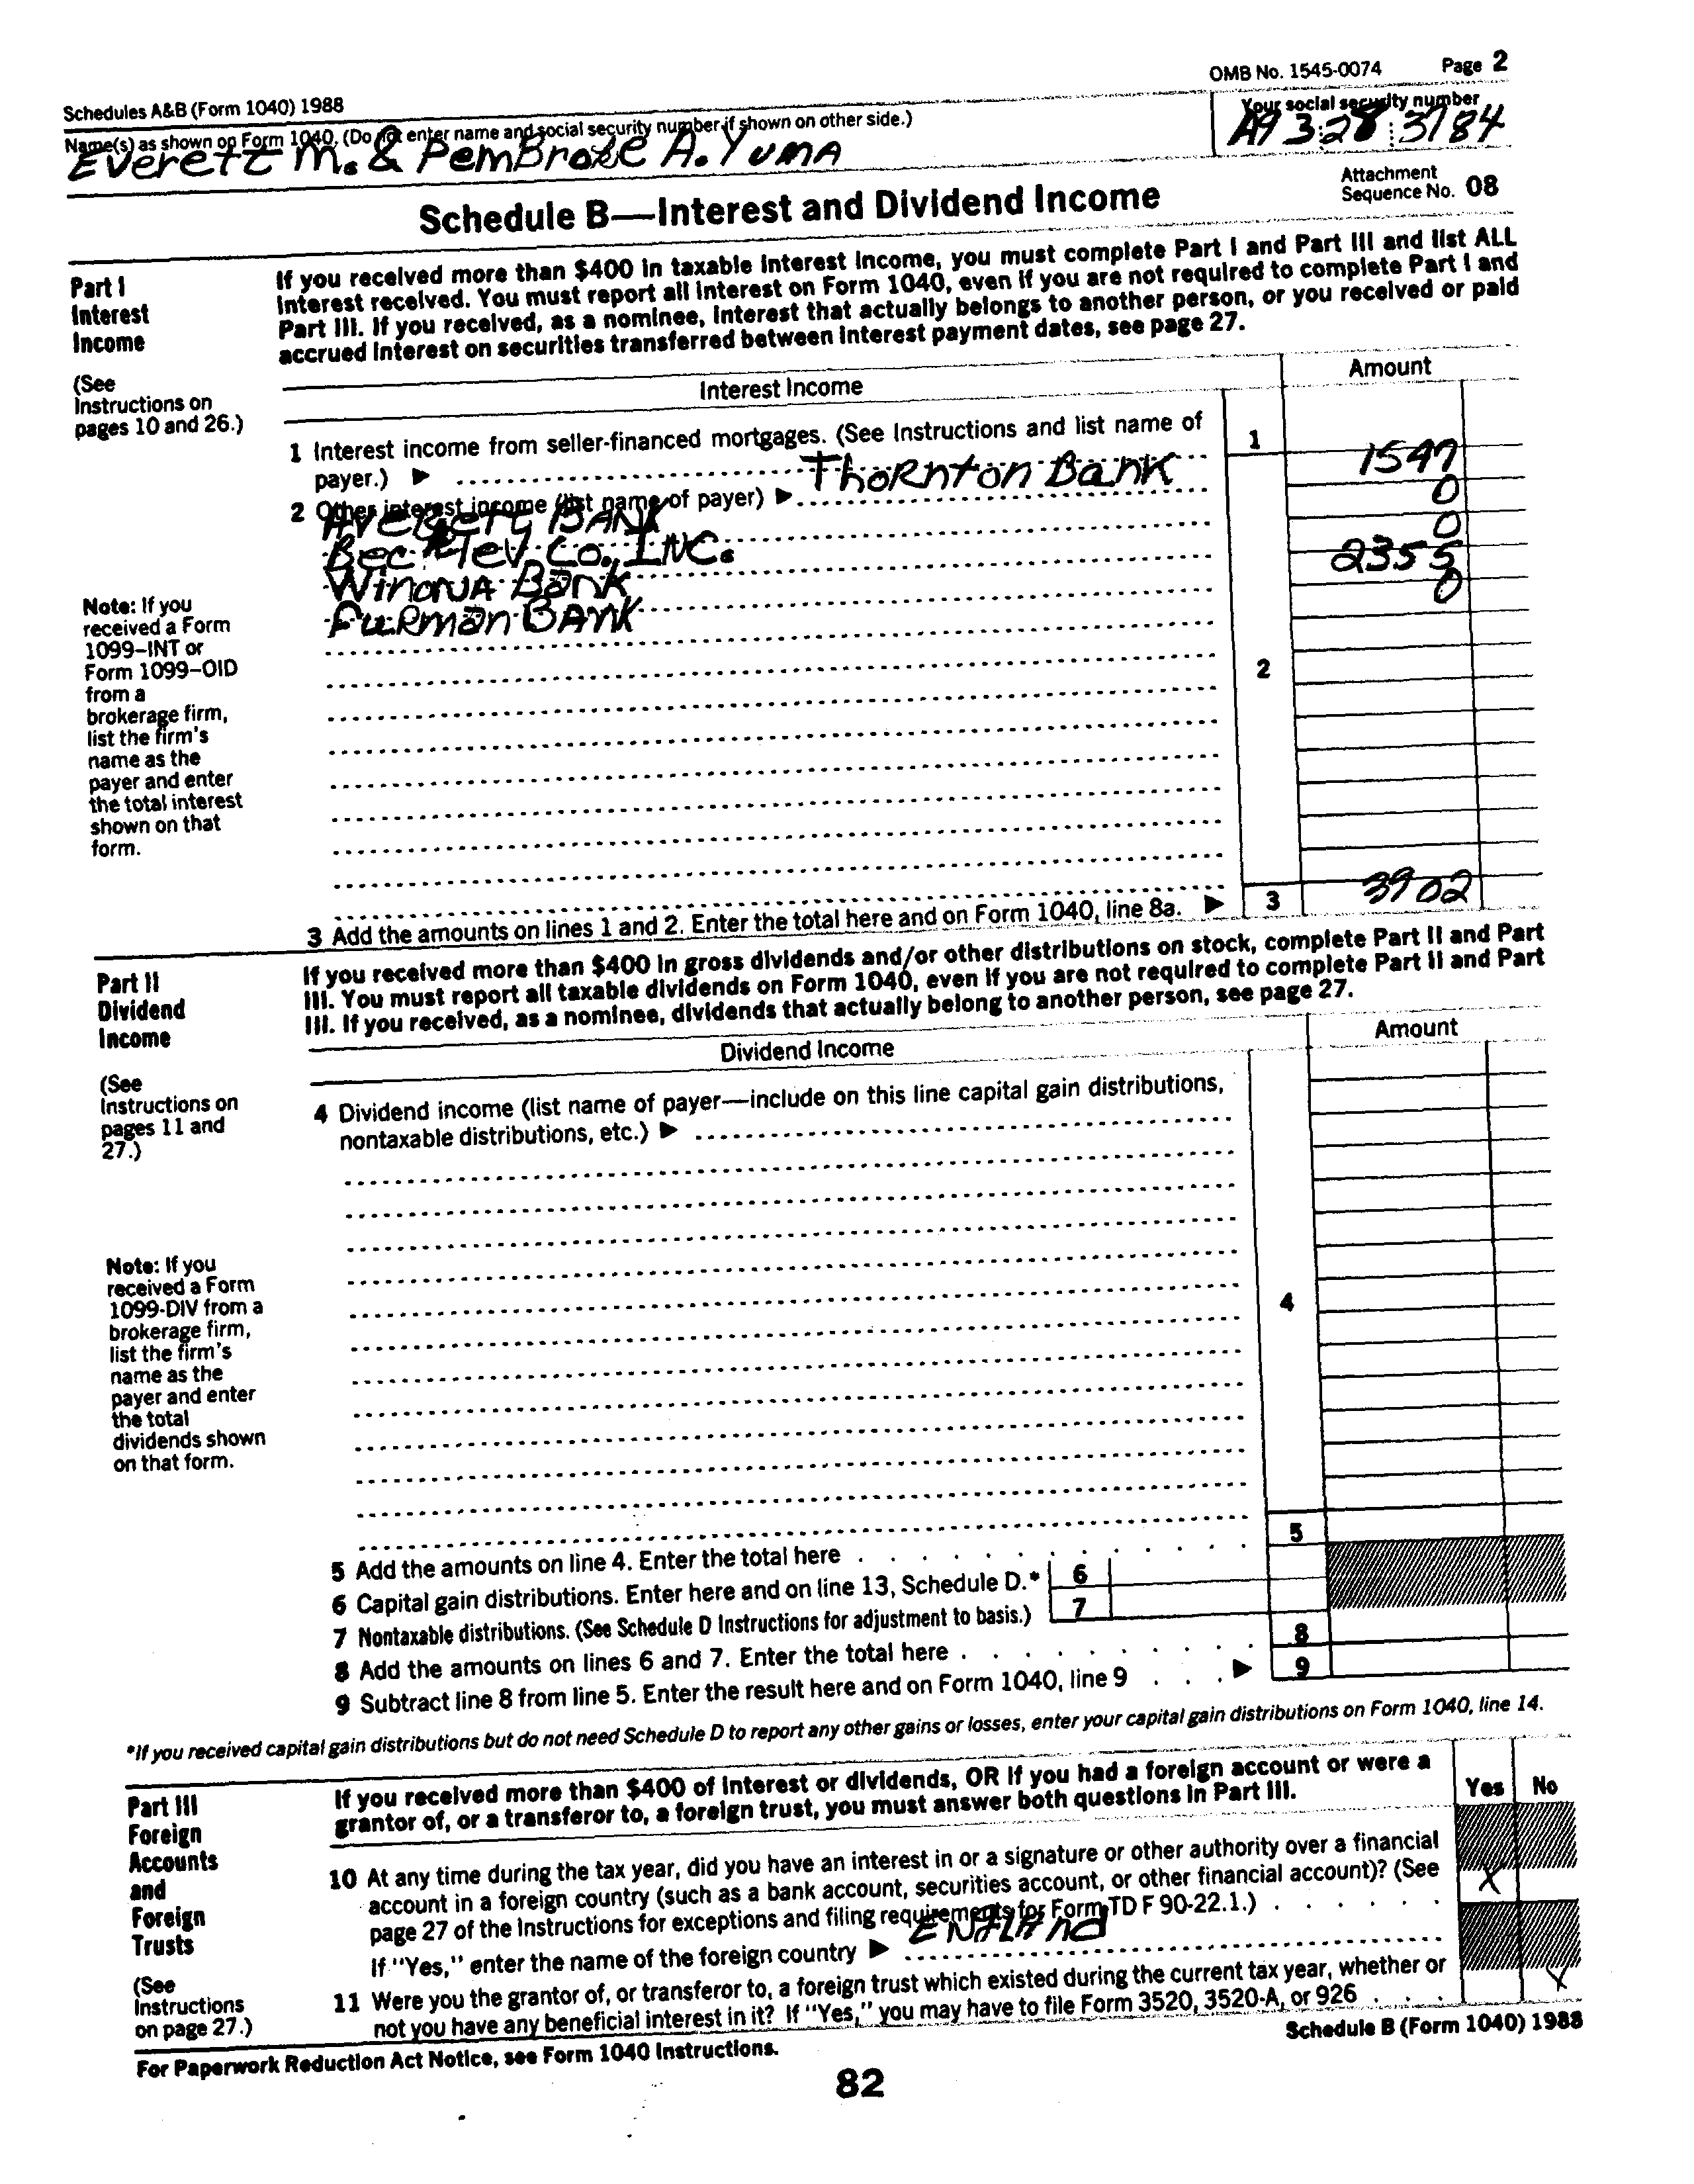 OMB No. 1545-0074 Page 2
Schedules A&B (Form 1040) 1988
Name(s) as shown on Form 1040. (Do not enter name and social security number if shown on other side.)
Your social security number
Everett M. & PemBroke A. Yuma
A9 3:28:3784
Attachment
Sequence No. 08
Schedule B—Interest and Dividend Income
Part I
Interest
Income
(See
Instructions on
pages 10 and 26.)
If you received more than $400 in taxable interest income, you must complete Part I and Part III and list ALL
interest received. You must report all interest on Form 1040, even if you are not required to complete Part I and
Part III. If you received, as a nominee, interest that actually belongs to another person, or you received or paid
accrued interest on securities transferred between interest payment dates, see page 27.
Interest Income
Amount
1 Interest income from seller-financed mortgages. (See Instructions and list name of
payer.) ▶ Thornton Bank
1
1547
2 Other interest income (list name of payer) ▶
0
BANK
0
Co., INC.
2355
Winona Bank
0
Furman BANK
2
Note: If you
received a Form
1099–INT or
Form 1099–OID
from a
brokerage firm,
list the firm's
name as the
payer and enter
the total interest
shown on that
form.
3 Add the amounts on lines 1 and 2. Enter the total here and on Form 1040, line 8a. ▶ 3 3902
Part II
Dividend
Income
(See
Instructions on
pages 11 and
27.)
If you received more than $400 in gross dividends and/or other distributions on stock, complete Part II and Part
III. You must report all taxable dividends on Form 1040, even if you are not required to complete Part II and Part
III. If you received, as a nominee, dividends that actually belong to another person, see page 27.
Dividend Income
Amount
4 Dividend income (list name of payer—include on this line capital gain distributions,
nontaxable distributions, etc.) ▶
4
Note: If you
received a Form
1099-DIV from a
brokerage firm,
list the firm's
name as the
payer and enter
the total
dividends shown
on that form.
5 Add the amounts on line 4. Enter the total here . . . . . . . . . . . 5
6 Capital gain distributions. Enter here and on line 13, Schedule D.* 6
7 Nontaxable distributions. (See Schedule D Instructions for adjustment to basis.) 7
8 Add the amounts on lines 6 and 7. Enter the total here . . . . . . . . . 8
9 Subtract line 8 from line 5. Enter the result here and on Form 1040, line 9 . . . ▶ 9
*If you received capital gain distributions but do not need Schedule D to report any other gains or losses, enter your capital gain distributions on Form 1040, line 14.
Part III
Foreign
Accounts
and
Foreign
Trusts
(See
Instructions
on page 27.)
If you received more than $400 of interest or dividends, OR if you had a foreign account or were a
grantor of, or a transferor to, a foreign trust, you must answer both questions in Part III.
Yes No
10 At any time during the tax year, did you have an interest in or a signature or other authority over a financial
account in a foreign country (such as a bank account, securities account, or other financial account)? (See
page 27 of the Instructions for exceptions and filing requirements for Form TD F 90-22.1.) . . . . . . X
If "Yes," enter the name of the foreign country ▶ England
11 Were you the grantor of, or transferor to, a foreign trust which existed during the current tax year, whether or
not you have any beneficial interest in it? If "Yes," you may have to file Form 3520, 3520-A, or 926 . . . X
For Paperwork Reduction Act Notice, see Form 1040 Instructions.
Schedule B (Form 1040) 1988
82